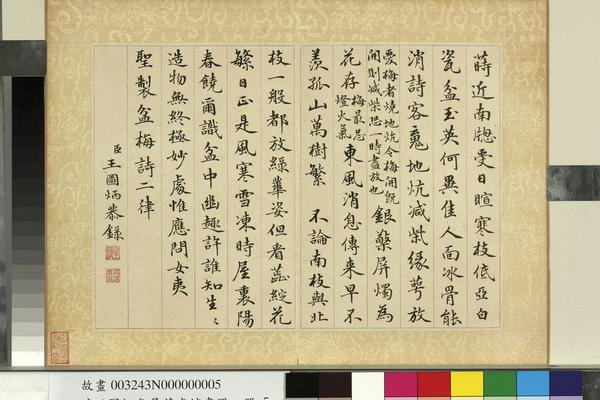 蒔近南牕受日暄寒枝低亞白
瓷盆玉英何異佳人面冰骨能
消詩客魂地炕減柴緣萼放
愛梅者燒地炕令梅開旣
開則减柴恐一時盡放也
銀檠屏燭為
花存
梅最忌
燈火氣
東風消息傳来早不
羨孤山萬樹繁 不論南枝與北
枝一般都放綠萼姿但看蕊綻花
繁日正是風寒雪凍時屋裏陽
春饒爾識盆中幽趣許誰知生〻
造物無終極妙處惟應問女夷
聖製盆梅詩二律
臣王圖炳恭錄
故畫 003243N000000005